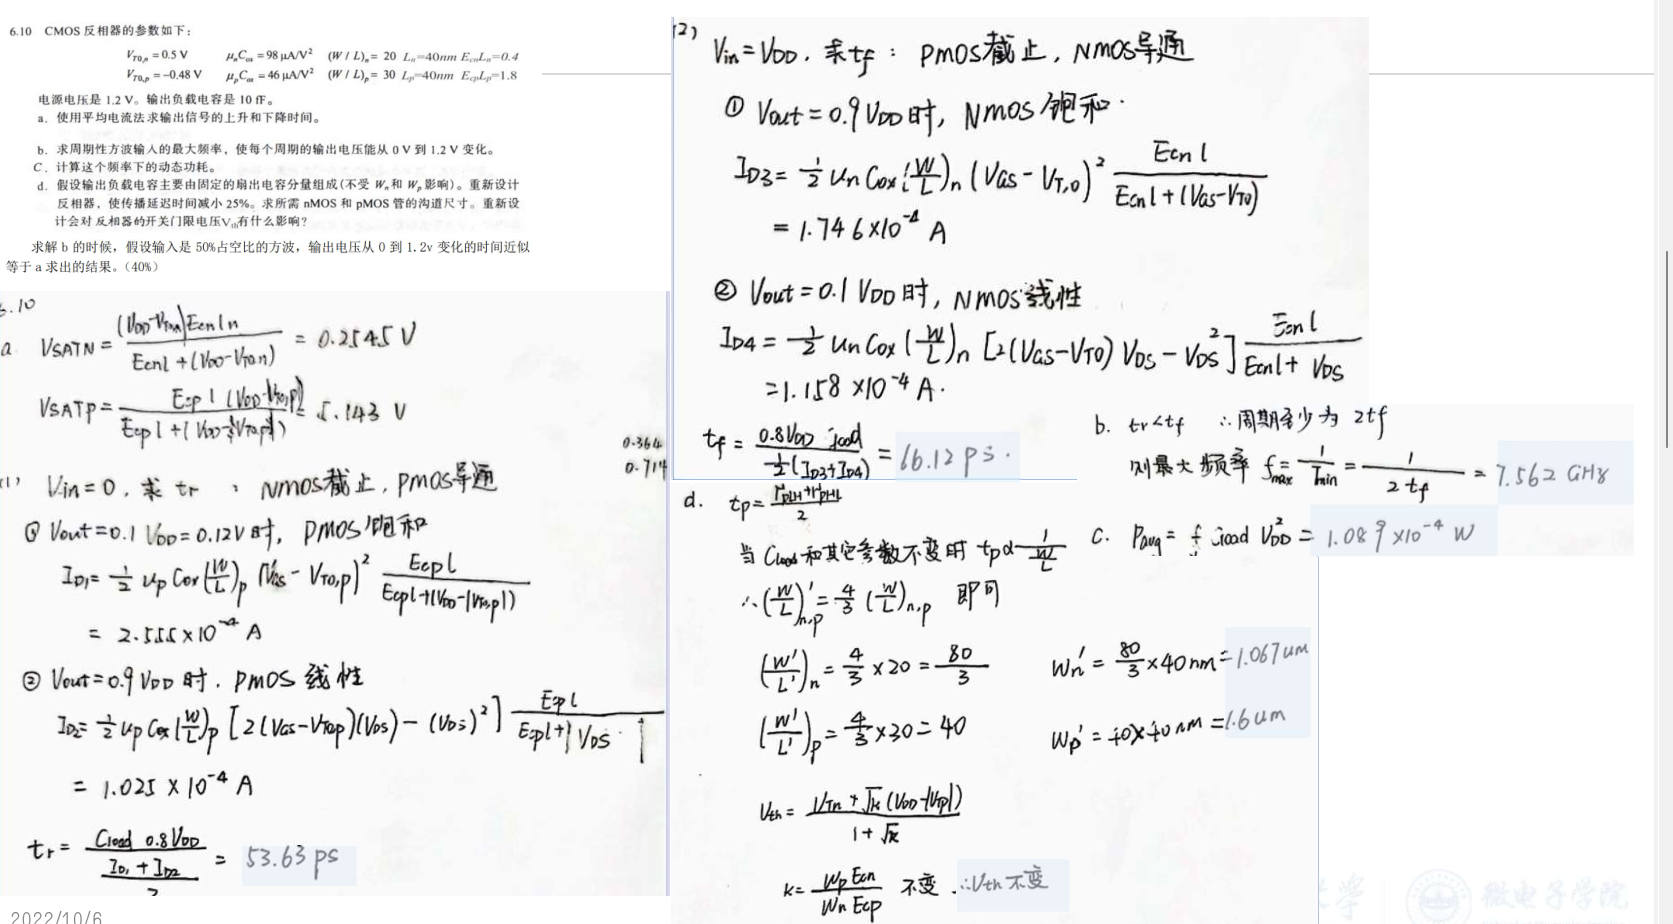 6.10 CMOS 反相器的参数如下:
V_{T0,n} = 0.5 V μ_nC_{ox} = 98 μA/V² (W / L)_n = 20 L_n=40nm E_{cn}L_n=0.4
V_{T0,p} = -0.48 V μ_pC_{ox} = 46 μA/V² (W / L)_p = 30 L_p=40nm E_{cp}L_p=1.8
电源电压是 1.2 V。输出负载电容是 10 fF。
a. 使用平均电流法求输出信号的上升和下降时间。
b. 求周期性方波输入的最大频率,使每个周期的输出电压能从 0 V 到 1.2 V 变化。
C. 计算这个频率下的动态功耗。
d. 假设输出负载电容主要由固定的扇出电容分量组成(不受 W_n和 W_p 影响)。重新设计
反相器,使传播延迟时间减小 25%。求所需 nMOS 和 pMOS 管的沟道尺寸。重新设
计会对反相器的开关门限电压V_{th}有什么影响?
求解 b 的时候,假设输入是 50%占空比的方波,输出电压从 0 到 1.2v 变化的时间近似
等于 a 求出的结果。(40%)
.10
a. V_{SATN} = \frac{(V_{DD}-V_{T0n})E_{cn}l_n}{E_{cn}l+(V_{DD}-V_{T0.n})} = 0.2545 V
V_{SATP} = \frac{E_{cp}l(V_{DD}-|V_{T0,p}|)}{E_{cp}l+(V_{DD}-|V_{T0,p}|)} = 5.143 V
0.364
0.714
(1) Vin=0, 求 tr : NMOS截止, PMOS导通
① Vout=0.1 V_{DD}=0.12V时, PMOS饱和
I_{D1}= \frac{1}{2} u_p Cox(\frac{W}{L})_p (V_{GS}-V_{T0,p})² \frac{E_{cp}l}{E_{cp}l+(V_{DD}-|V_{T0,p}|)}
= 2.555×10^{-4} A
② Vout=0.9 V_{DD} 时. PMOS 线性
I_{D2}= \frac{1}{2} u_p Cox(\frac{W}{L})_p [2(V_{GS}-V_{T0p})(V_{DS})-(V_{DS})²] \frac{E_{cp}l}{E_{cp}l+|V_{DS}|}
= 1.025 × 10^{-4} A
tr= \frac{Cload 0.8V_{DD}}{\frac{I_{D1}+I_{D2}}{2}} = 53.63 ps
2022/10/6
(2) Vin=V_{DD}, 求 tf : PMOS截止, NMOS导通
① Vout=0.9 V_{DD}时, NMOS饱和.
I_{D3}= \frac{1}{2} u_n Cox(\frac{W}{L})_n (V_{GS}-V_{T,0})² \frac{E_{cn}l}{E_{cn}l+(V_{GS}-V_{T0})}
= 1.746×10^{-4} A
② Vout=0.1 V_{DD}时, NMOS线性
I_{D4}= \frac{1}{2} u_n Cox(\frac{W}{L})_n [2(V_{GS}-V_{T0})V_{DS}-V_{DS}²] \frac{E_{cn}l}{E_{cn}l+V_{DS}}
=1.158 ×10^{-4} A.
tf = \frac{0.8V_{DD} Cload}{\frac{1}{2}(I_{D3}+I_{D4})} = 66.12 ps.
b. tr<tf ∴周期至少为 2tf
则最大频率 f_{max}= \frac{1}{T_{min}} = \frac{1}{2 tf} = 7.562 GHz
c. P_{avg}= f Cload V_{DD}² = 1.089×10^{-4} W
d. tp= \frac{t_{PLH}+t_{PHL}}{2}
当 Cload和其它参数不变时 tp∝\frac{1}{\frac{W}{L}}
∴(\frac{W}{L})'_{n,p}=\frac{4}{3}(\frac{W}{L})_{n,p} 即可
(\frac{W'}{L'})_n= \frac{4}{3}×20=\frac{80}{3} Wn'= \frac{80}{3}×40nm=1.067um
(\frac{W'}{L'})_p= \frac{4}{3}×30=40 Wp'= 40×40nm=1.6um
V_{th}= \frac{V_{Tn}+\sqrt{k}(V_{DD}-|V_{Tp}|)}{1+\sqrt{k}}
k= \frac{Wp Ecn}{Wn Ecp} 不变 ∴Vth不变
微电子学院